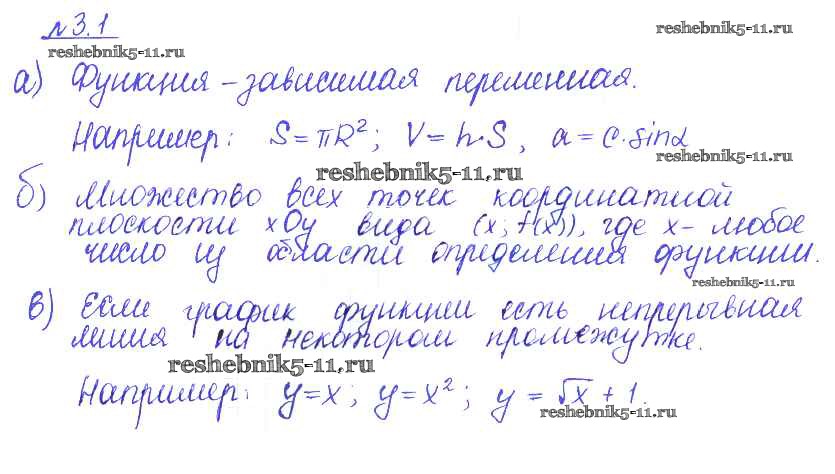 № 3.1
reshebnik5-11.ru
reshebnik5-11.ru
а) Функция – зависимая переменная.
Например: S = πR²; V = h·S, a = c·sinα
reshebnik5-11.ru
reshebnik5-11.ru
б) Множество всех точек координатной
плоскости xOy вида (x; f(x)), где x – любое
число из области определения функции.
reshebnik5-11.ru
в) Если график функции есть непрерывная
линия на некотором промежутке.
reshebnik5-11.ru
Например: y = x; y = x²; y = √x + 1.
reshebnik5-11.ru